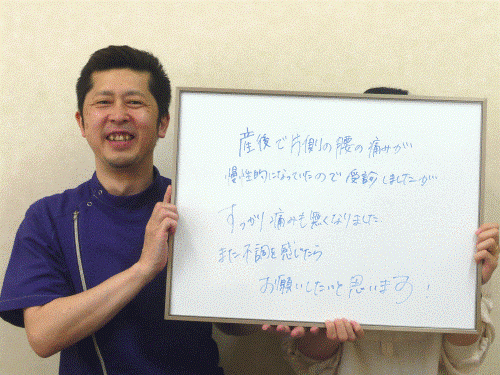 産後で片側の腰の痛みが
慢性的になっていたので受診しましたが
すっかり痛みも無くなりました
また不調を感じたら
お願いしたいと思います!